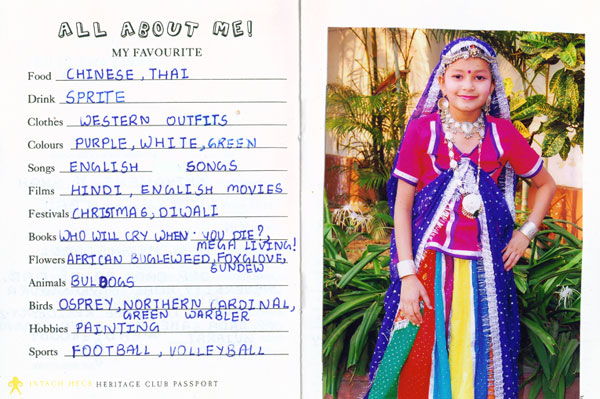 ALL ABOUT ME!
MY FAVOURITE
Food CHINESE, THAI
Drink SPRITE
Clothes WESTERN OUTFITS
Colours PURPLE, WHITE, GREEN
Songs ENGLISH SONGS
Films HINDI, ENGLISH MOVIES
Festivals CHRISTMAS, DIWALI
Books WHO WILL CRY WHEN YOU DIE?,
MEGA LIVING!
Flowers AFRICAN BUGLEWEED, FOXGLOVE,
SUNDEW
Animals BULDOGS
Birds OSPREY, NORTHERN CARDINAL,
GREEN WARBLER
Hobbies PAINTING
Sports FOOTBALL, VOLLEYBALL
INTACH HECS HERITAGE CLUB PASSPORT